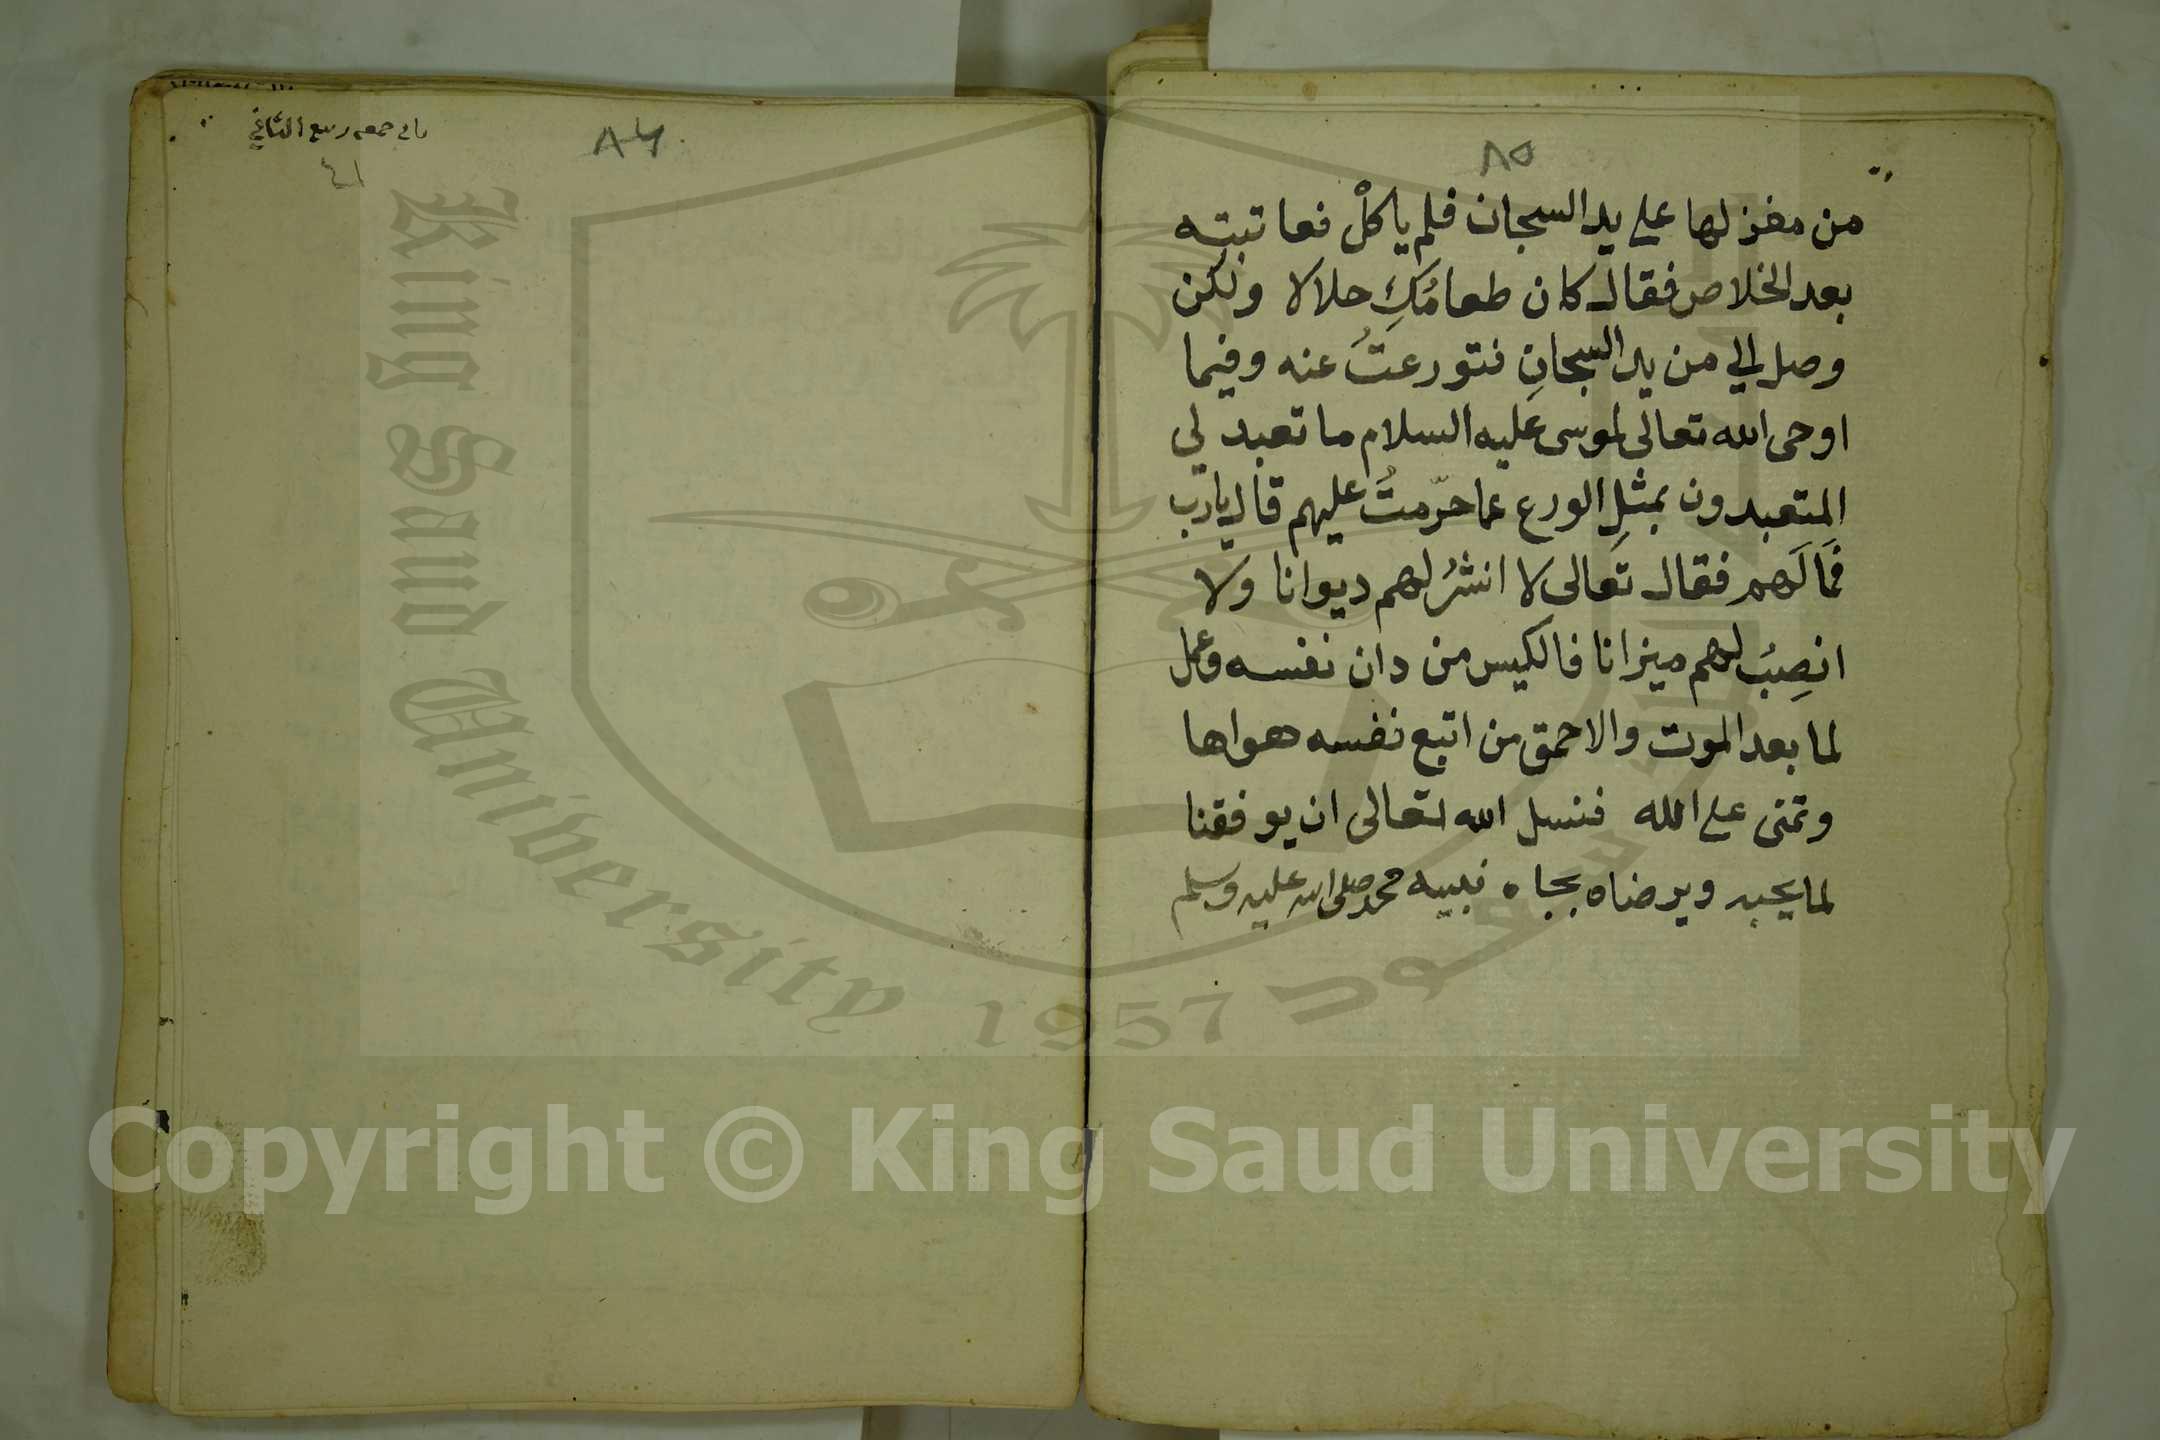 ٨٥
من مغزلها على يد السجان فلم ياكلْ فعاتبته
بعد الخلاص فقال كان طعامُكِ حلالا ولكن
وصل الي من يد السجانِ فتورعتُ عنه وفيما
اوحى الله تعالى لموسى عليه السلام ما تعبد لي
المتعبدون بمثلِ الورع عما حرّمتُ عليهم قال يارب
فمَا لَهم فقال تعالى لا انشرُ لهم ديوانا ولا
انصِبُ لهم ميزانا فالكيس من دان نفسه وعمل
لما بعد الموت والاحمق من اتبع نفسه هواها
وتمنى على الله فنسل الله تعالى ان يوفقنا
لما يحبه ويرضاه بجاه نبيه محمد صلى الله عليه وسلم
٨٦
جمعه ربيع الثاني
٤١
King Saud University
1957
Copyright © King Saud University